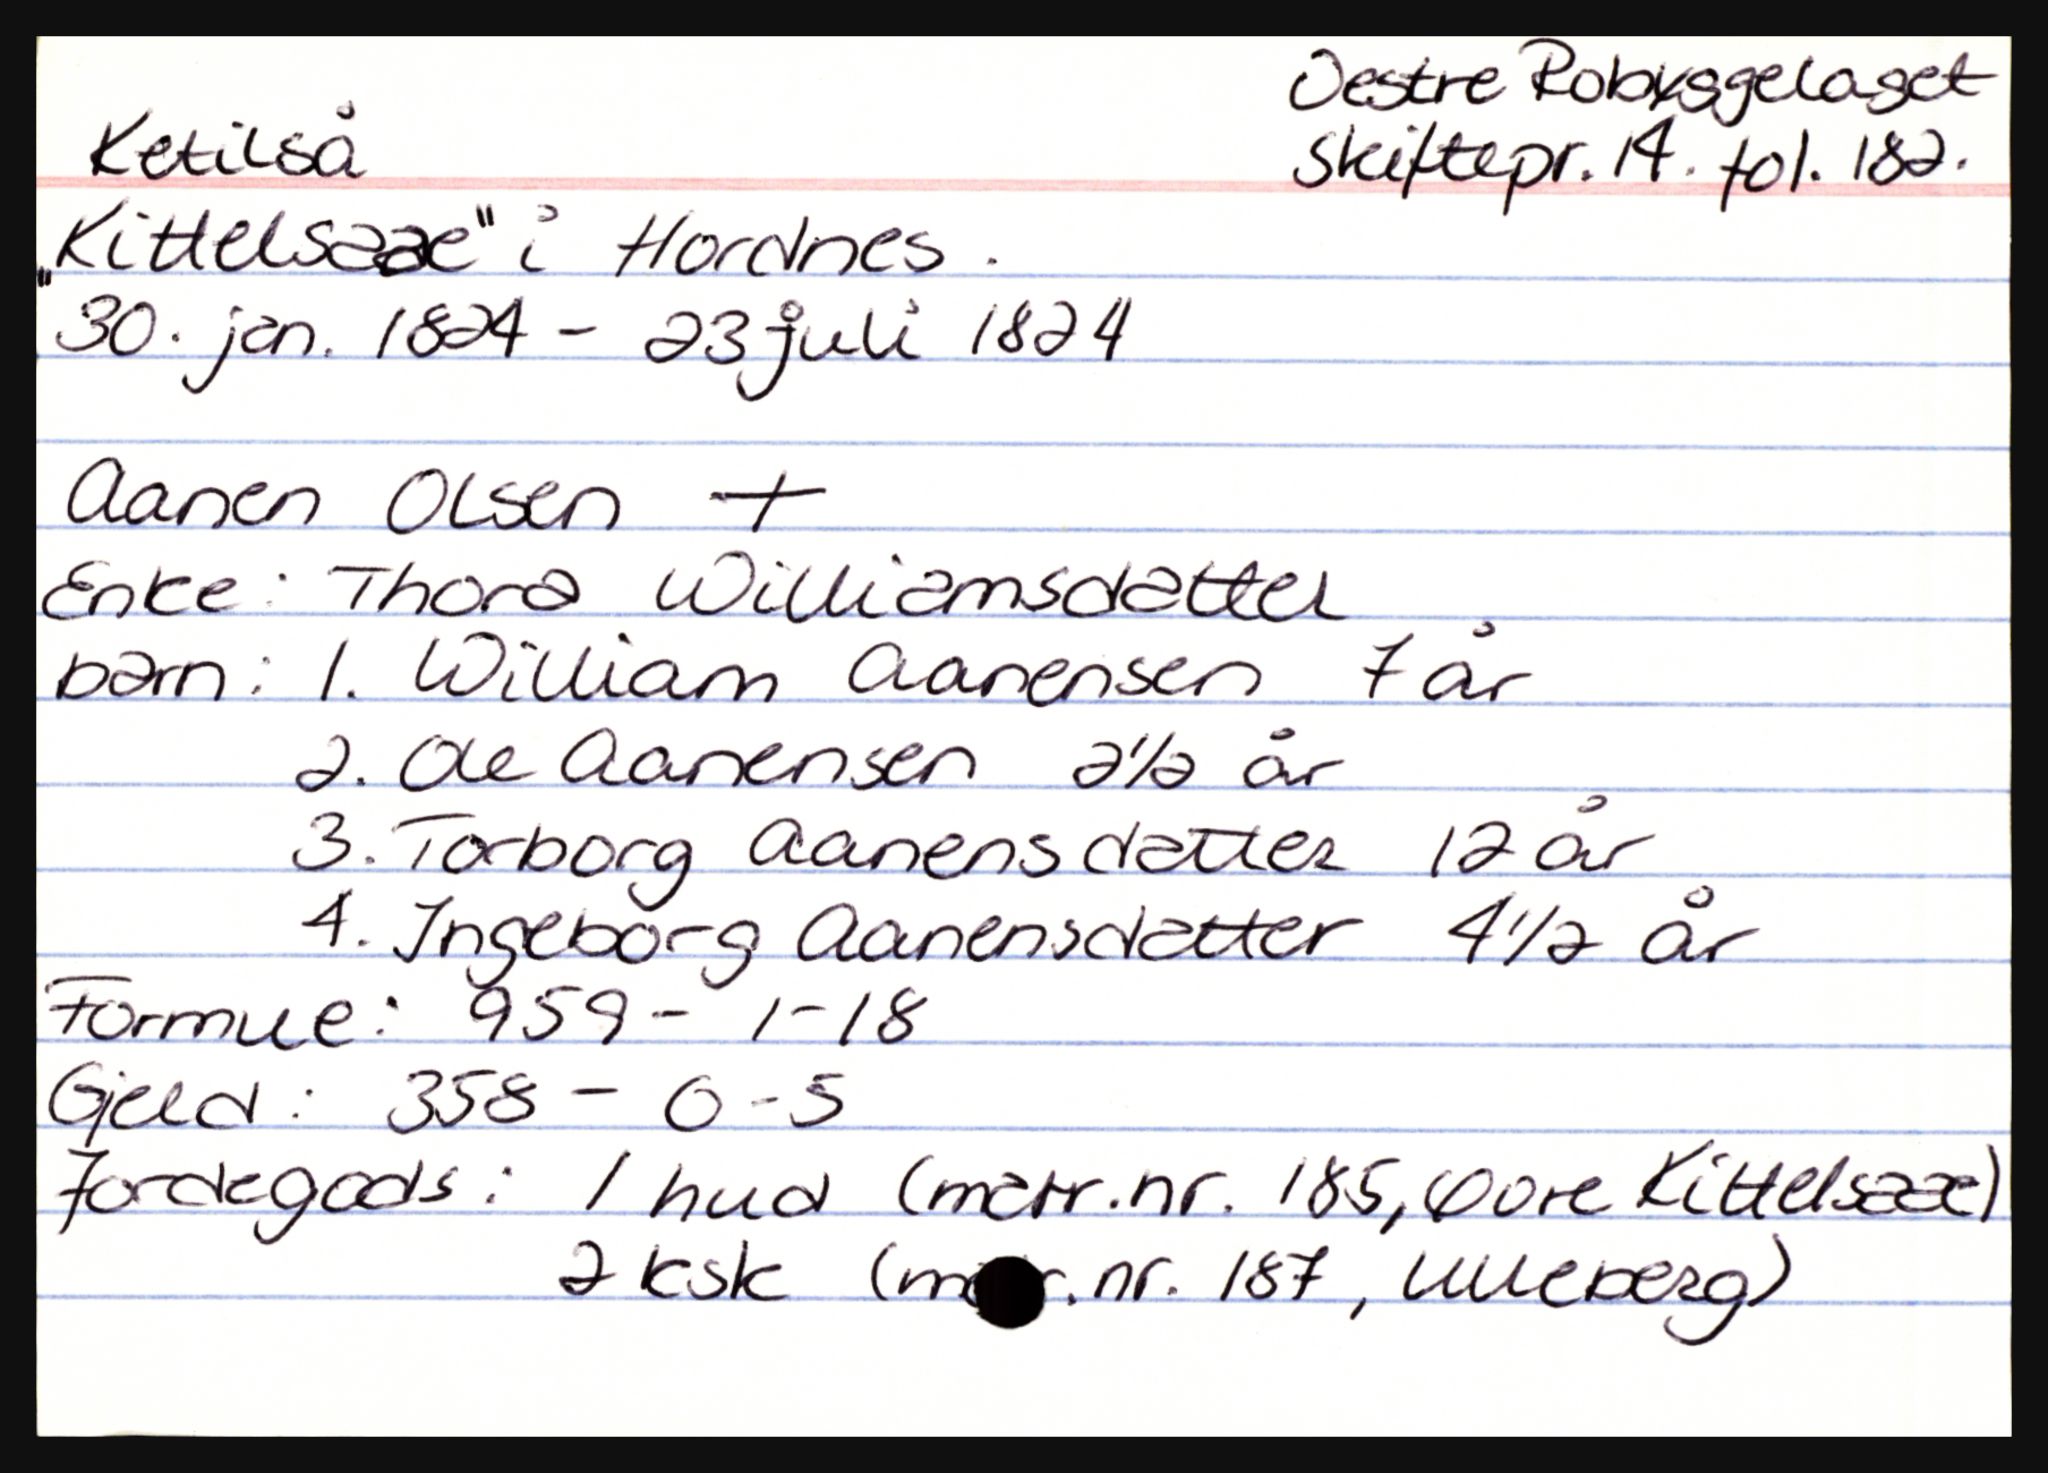 Oestre Robyggelaget
Ketilså Skiftepr. 14. fol. 182.
"Kittelsaae" i Hordnes.
30. jan. 1824 - 23 juli 1824
Aanen Olsen +
Enke: Thora Williamsdatter
barn: 1. William Aanensen 7 år
2. Ole Aanensen 2 1/2 år
3. Torborg Aanensdatter 12 år
4. Ingeborg Aanensdatter 4 1/2 år
Formue: 959 - 1 - 18
Gjeld: 358 - 0 - 5
Jordegods: 1 hud (matr.nr. 185, Øvre Kittelsaae)
2 ksk (matr.nr. 187, Ulleberg)